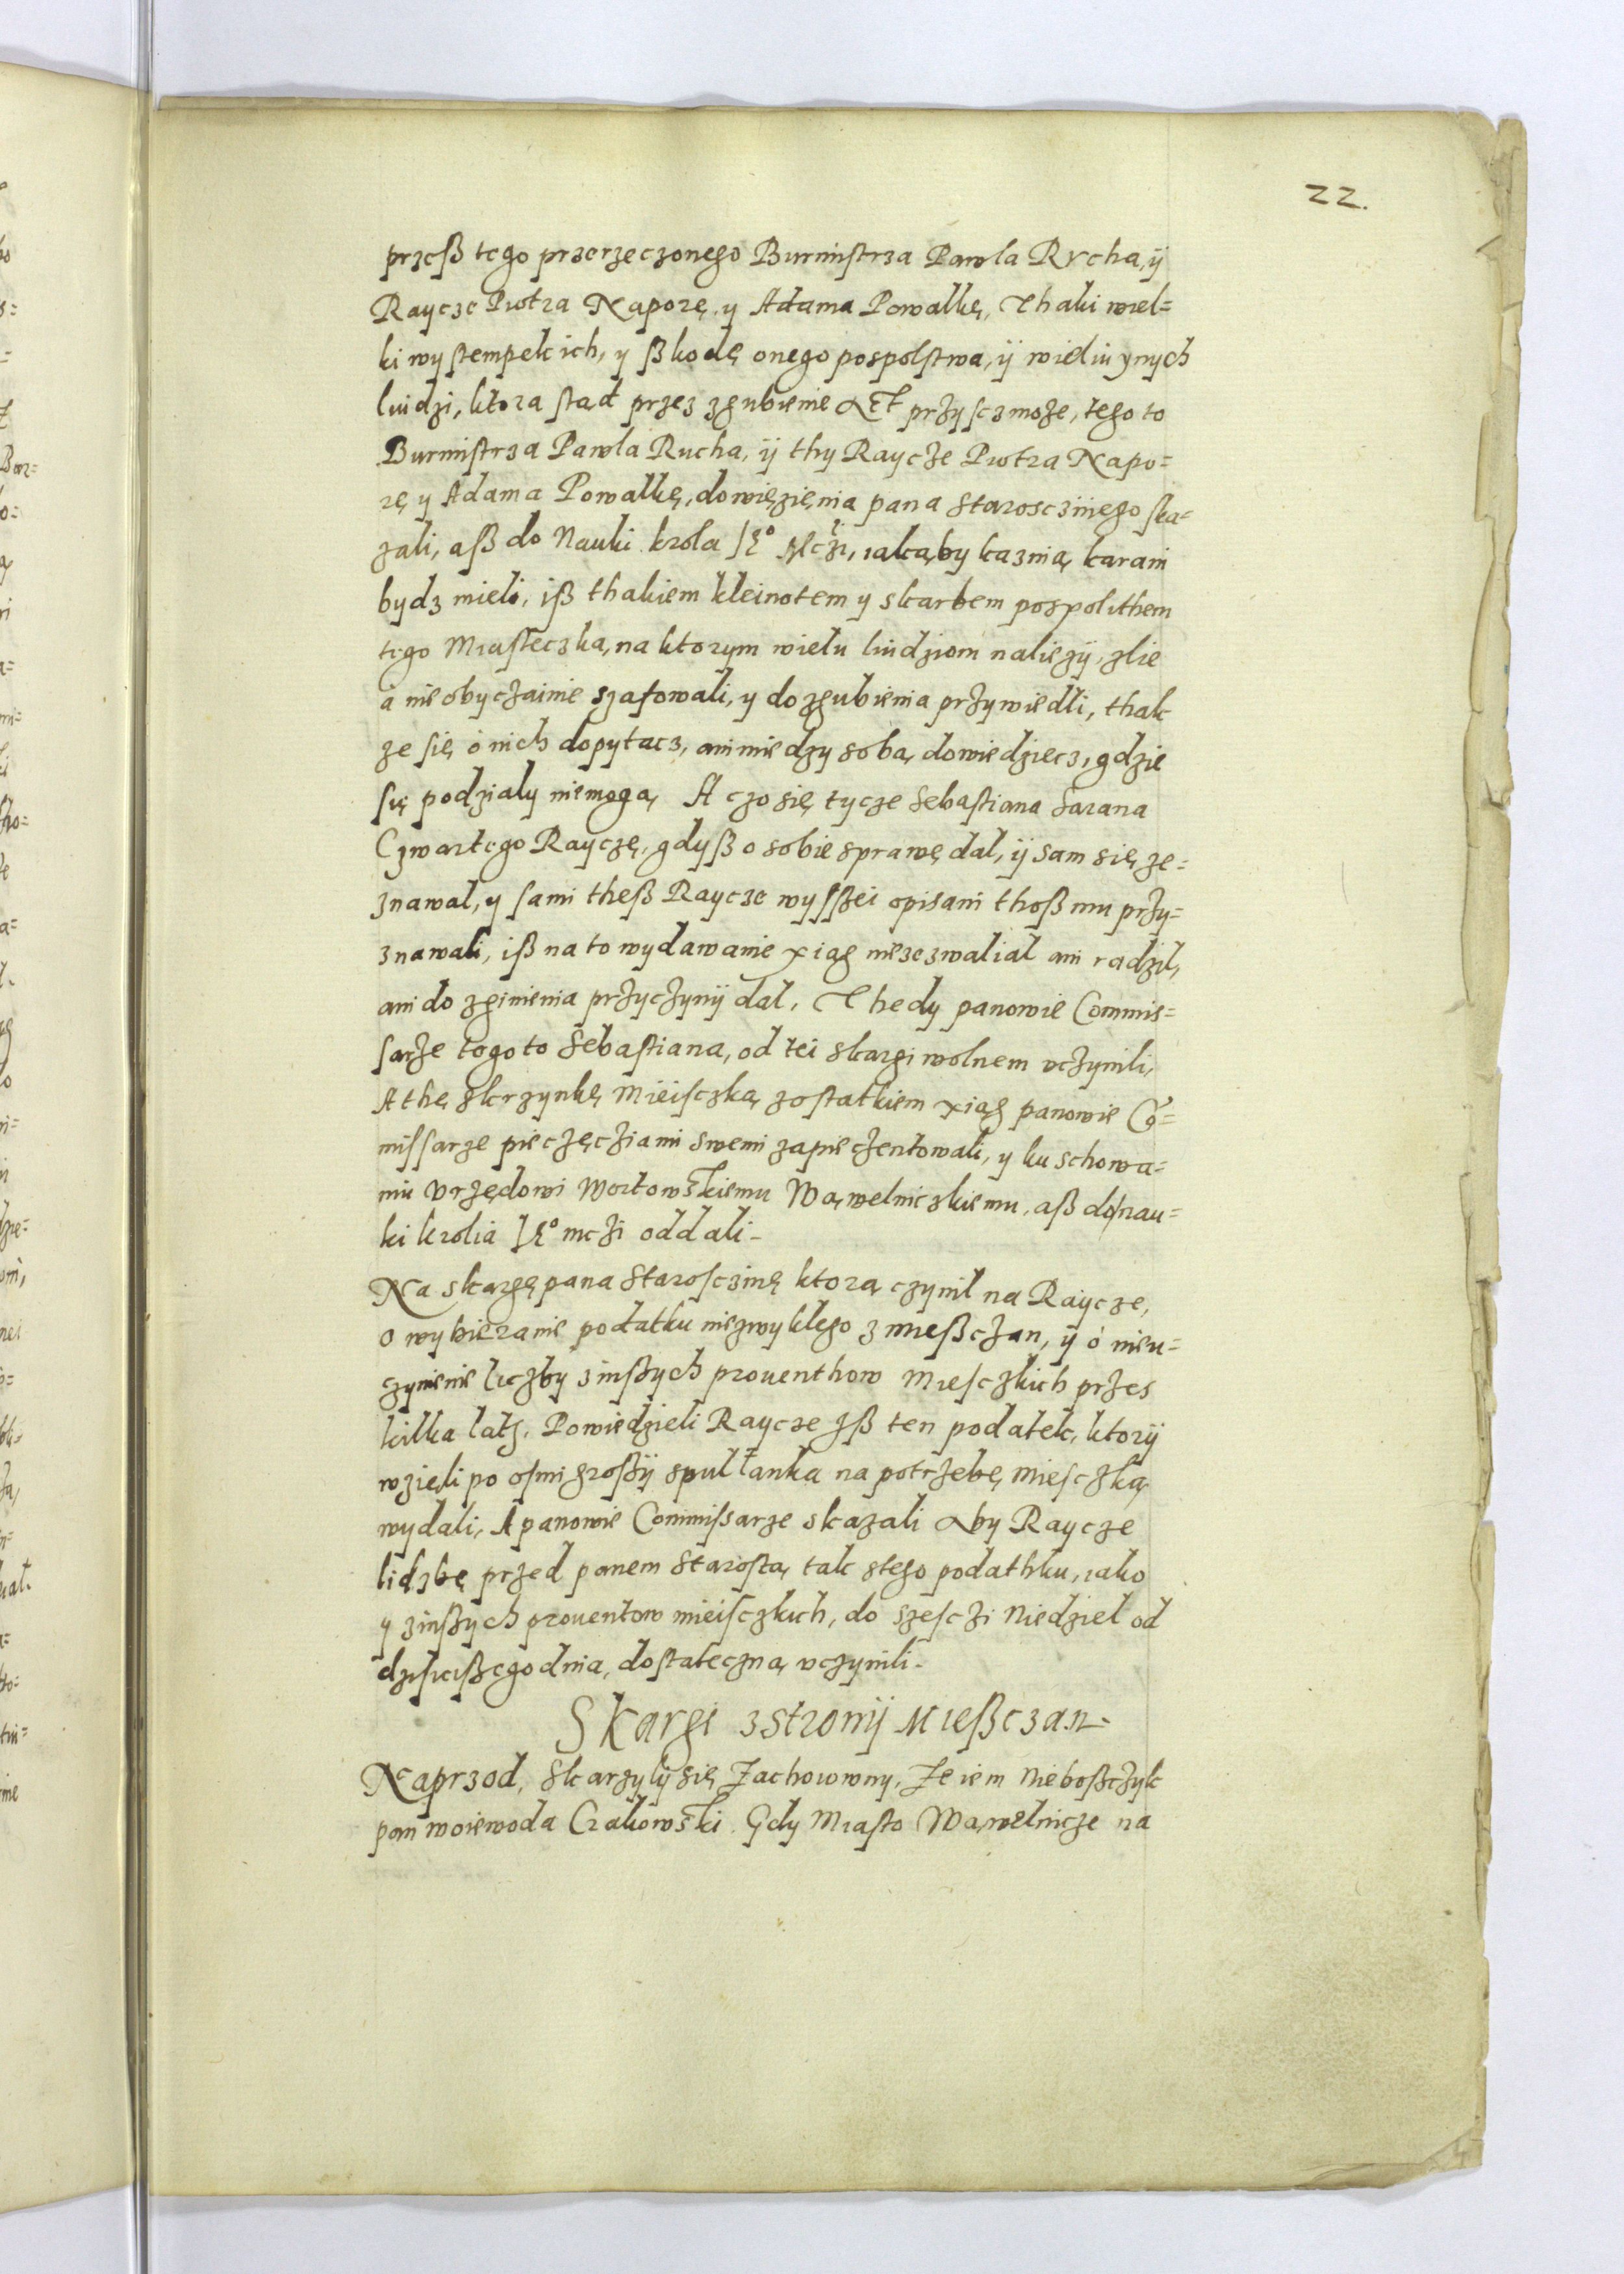 22.
przeß tego przerzeczonego Burmistrza Pawla Rvcha, ÿ
Raycze Piotra Naporę y Adama Powalkę, Thaki wiel=
ki wystempek ich, y ßkodę onego pospolstwa, ÿ wieliu ynych
liudzi, ktora stąd przez zgubienie Act przyscz może, tego to
Burmistrza Pawla Rucha, ÿ thy Raycże Piotra Napo=
rę y Adama Powalkę, do więzięnia pana Starosczinego ska=
zali, aß do Nauki krola Je° Mczi, iakąby kaznią karani
bydz mieli, iß thakiem kleinotem y skarbem pospolithem
tego Miasteczka, na ktorym wielu liudziom należÿ, zlie
a nieobyczainie szafowali, y do zgubienia przywiedli, thak
ze się o nich dopytacz, ani miedzy sobą dowiedziecz, gdzie
się podzialy niemogą, A czo się tycze Sebastiana Sarana
Czwartego Rayczę, gdyß o sobie sprawę dal, ÿ sam się ze=
znawal, y sami theß Raycze wysszei opisani thoß mu przy=
znawali, iß na to wydawanie xiąg niezezwalial ani radzil,
ani do zginienia przyczynÿ dal, Thedy panowie Commis=
sarze togo to Sebastiana, od tei skargi wolnem vczynili,
A thę skrzynkę Mieisczką zostatkiem xiąg panowie Cõ=
missarze pieczęcziami swemi zapieczentowali, y ku schowa=
niu Vrzędowi Wortowskiemu Wąwelniczkiemu, aß do nau=
ki krolia Je° mczi oddali -
Na skargę pana Starosczinę ktorą czynil na Raycze,
o wybieranie podatku niezwyklego z mießczan, ÿ o nieu=
czynienie liczby z inßych prouenthow Miesczkich przes
kilka lath. Powiedzieli Raycze Iß ten podatek, ktorÿ
wzięli po osmi großÿ spul łanka na potrzebę miesczką
wydali, A panowie Commissarze skazali Aby Raycze
lidzbę przed panem Starostą tak stego podathku, iako
y zinßych prouentow mieisczkich, do szesczi Niedziel od
dzisieißego dnia, dostateczną vczynili -
Skargi zstronÿ Mießczan -
Naprzod, Skarzylÿ się Zachowowny, Ze iem Nieboßczyk
pan woiewoda Crakowski. Gdy Miasto Wąwelnicze na